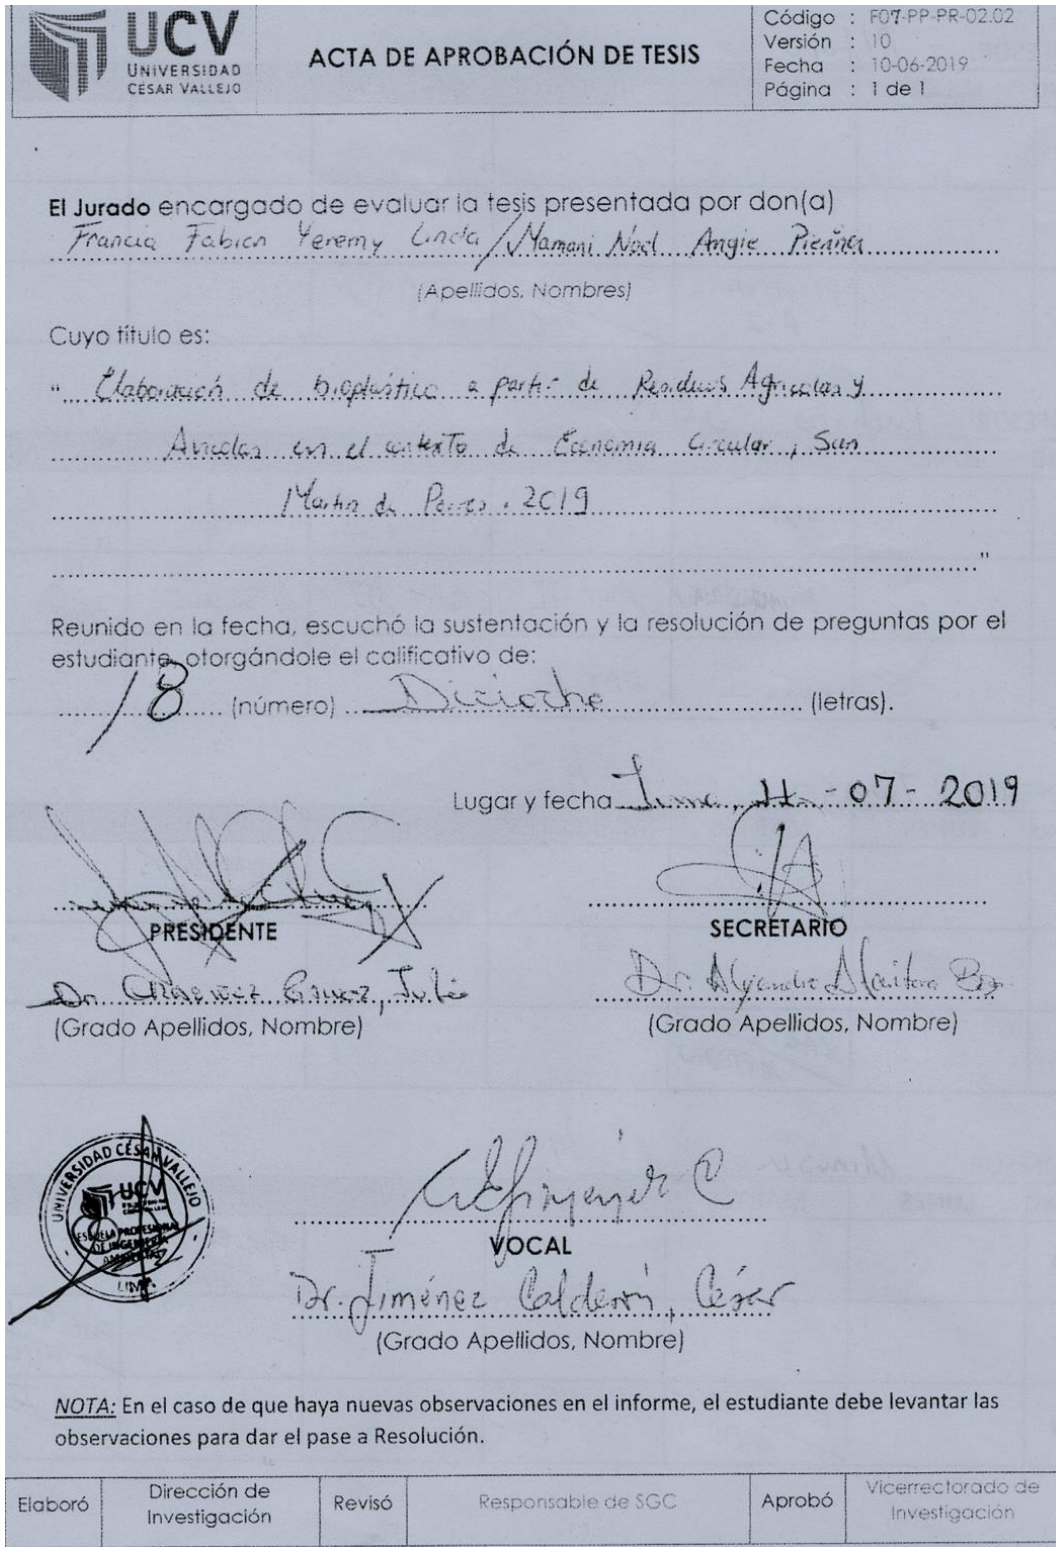 UCV
UNIVERSIDAD
CÉSAR VALLEJO
ACTA DE APROBACIÓN DE TESIS
Código : F07-PP-PR-02.02
Versión : 10
Fecha : 10-06-2019
Página : 1 de 1
El Jurado encargado de evaluar la tesis presentada por don(a)
Francia Fabian Yeremy Linda / Mamani Noel Angie Pierina
(Apellidos, Nombres)
Cuyo título es:
" Elaboración de bioplástico a partir de Residuos Agricolas y
Avicolas en el contexto de Economia Circular, San
Martin de Porres. 2019
"
Reunido en la fecha, escuchó la sustentación y la resolución de preguntas por el
estudiante, otorgándole el calificativo de:
18 (número) Dieciocho (letras).
Lugar y fecha Lima, 11-07-2019
PRESIDENTE
SECRETARIO
Dr. Julio
Dr. Alejandro
(Grado Apellidos, Nombre)
(Grado Apellidos, Nombre)
UNIVERSIDAD CÉSAR VALLEJO
UCV
ESCUELA PROFESIONAL
DE INGENIERÍA
AMBIENTAL
LIMA
VOCAL
Dr. Jiménez Calderón, César
(Grado Apellidos, Nombre)
NOTA: En el caso de que haya nuevas observaciones en el informe, el estudiante debe levantar las
observaciones para dar el pase a Resolución.
Elaboró
Dirección de
Investigación
Revisó
Responsable de SGC
Aprobó
Vicerrectorado de
Investigación